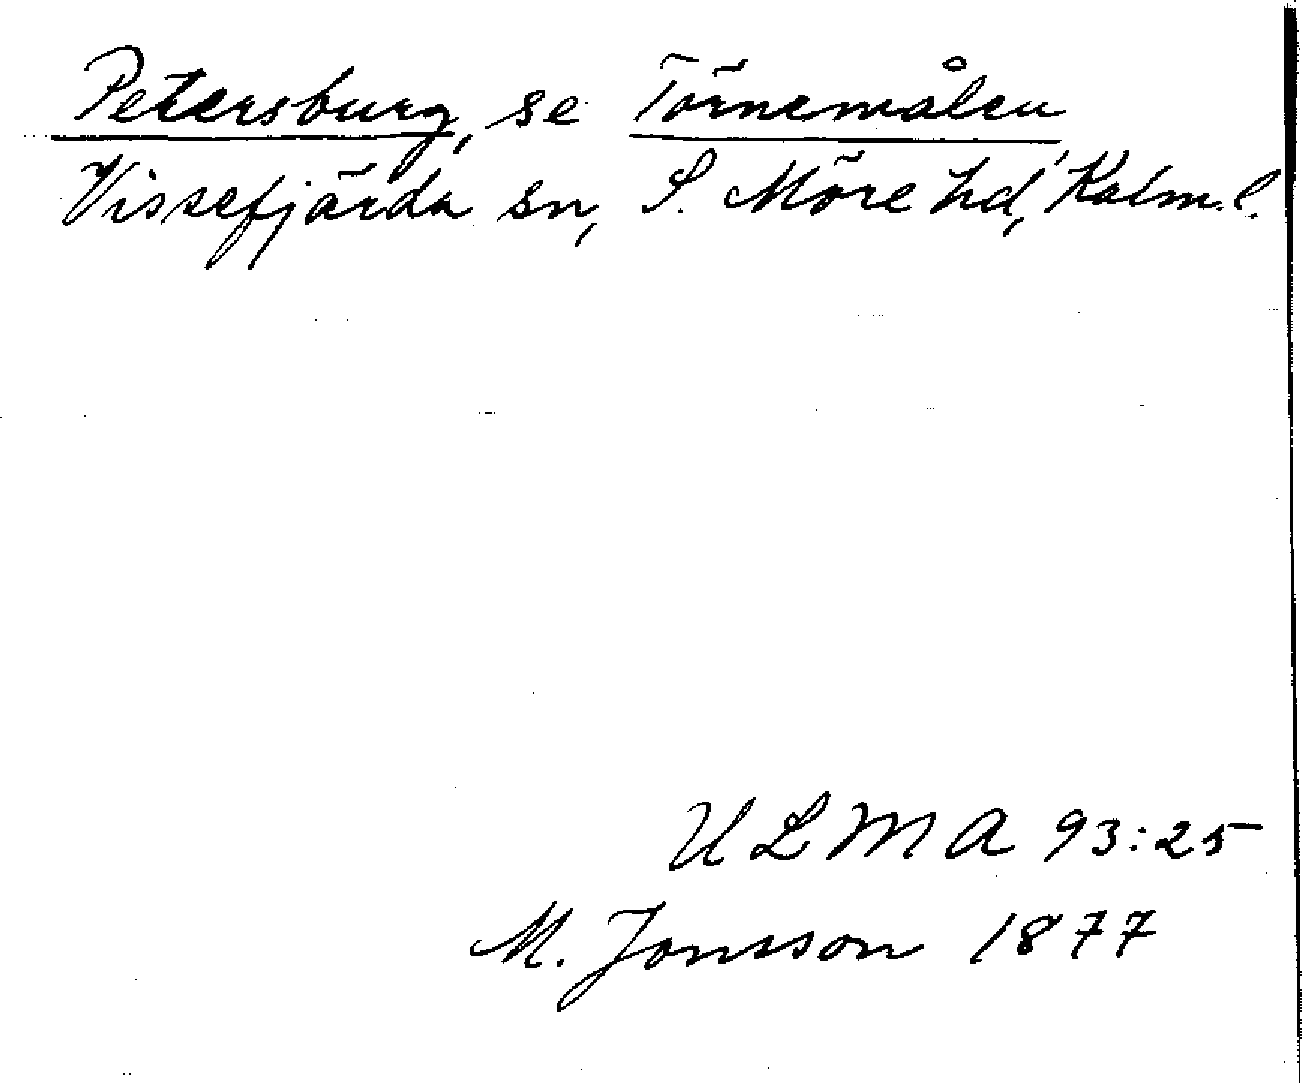 Petersburg, se Törnemålen
Vissefjärda sn, S. Möre hd, Kalm. l.
ULMA 93:25
M. Jonsson 1877